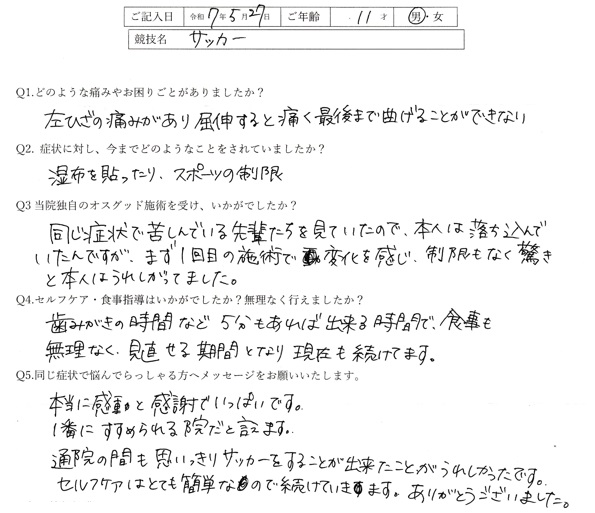 ご記入日 令和 7年 5月 27日 ご年齢 11才 男・女
競技名 サッカー
Q1.どのような痛みやお困りごとがありましたか？
左ひざの痛みがあり屈伸すると痛く最後まで曲げることができない
Q2. 症状に対し、今までどのようなことをされていましたか？
湿布を貼ったり、スポーツの制限
Q3 当院独自のオスグッド施術を受け、いかがでしたか？
同じ症状で苦しんでいる先輩たちを見ていたので、本人は落ち込んで
いたんですが、まず1回目の施術で変化を感じ、制限もなく驚き
と本人はうれしがってました。
Q4.セルフケア・食事指導はいかがでしたか？無理なく行えましたか？
歯みがきの時間など5分もあれば出来る時間で、食事も
無理なく、見直せる期間となり現在も続けてます。
Q5.同じ症状で悩んでらっしゃる方へメッセージをお願いいたします。
本当に感動と感謝でいっぱいです。
1番にすすめられる院だと言えます。
通院の間も思いっきりサッカーをすることが出来たことがうれしかったです。
セルフケアはとても簡単なので続けていきます。ありがとうございました。